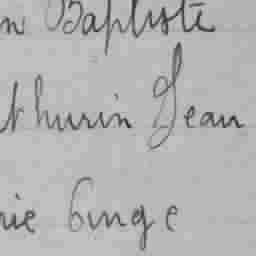 n Baptiste
thurin Jean
rie Cinge